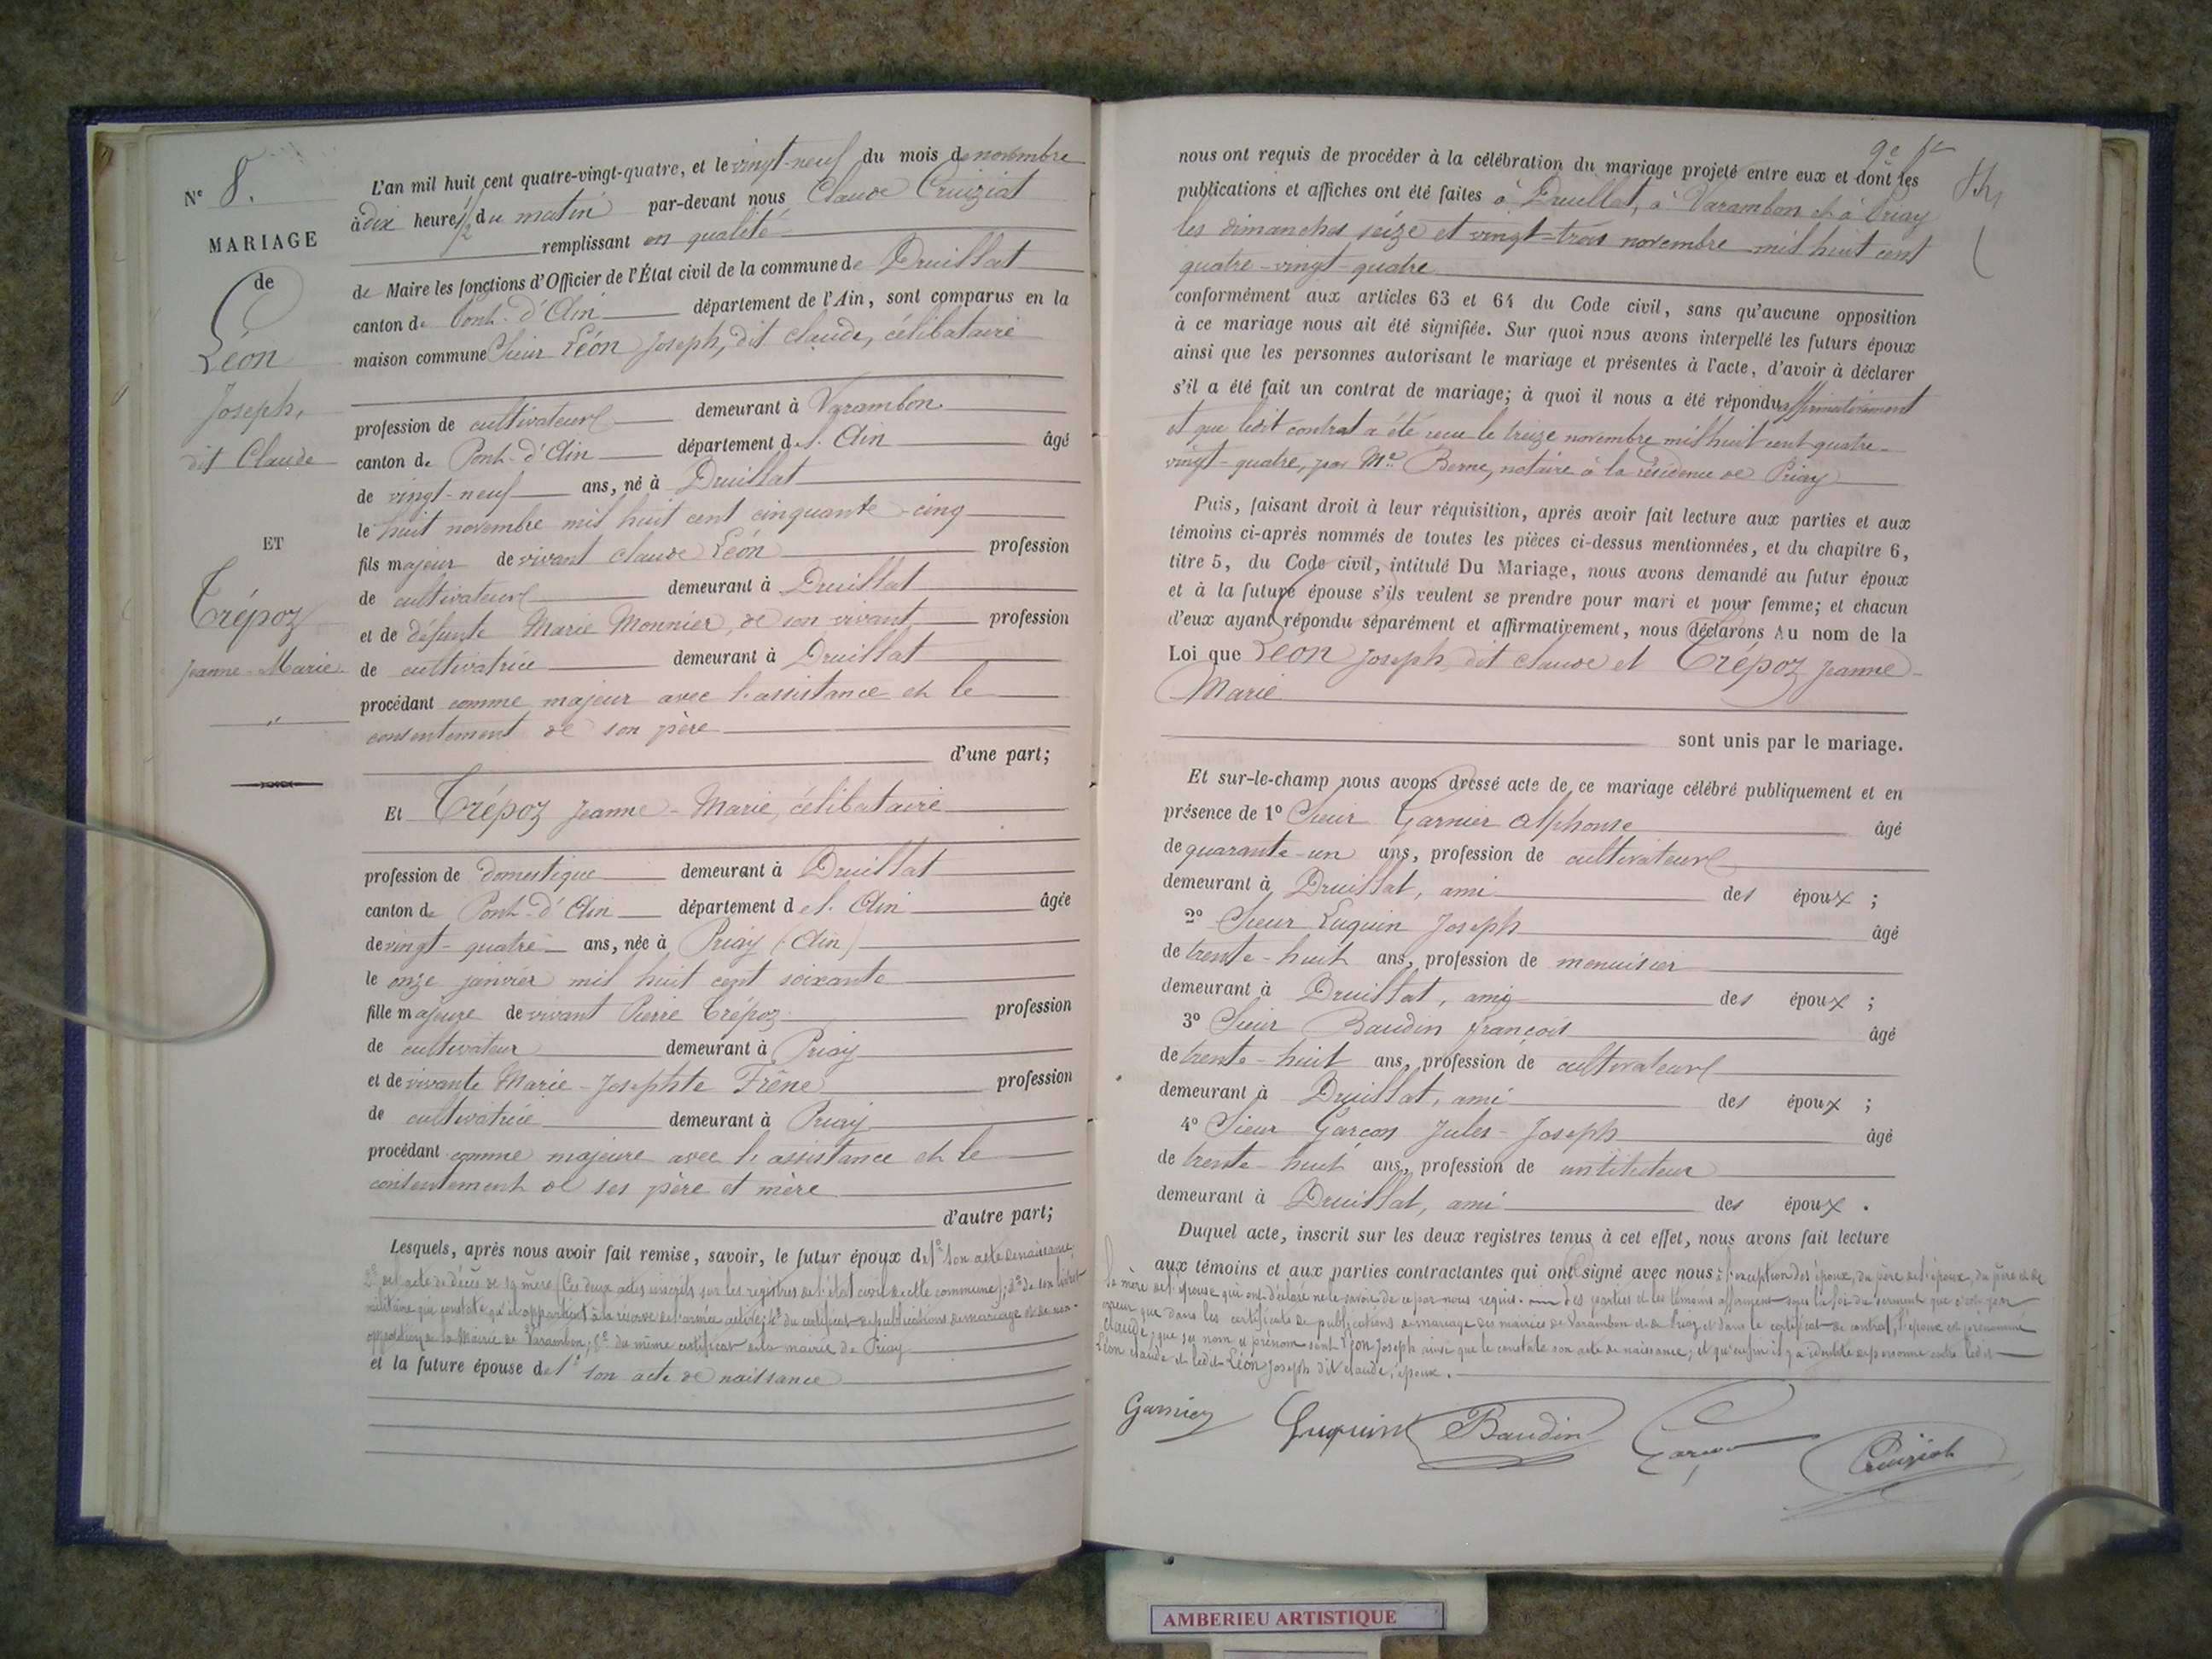 N° 8.
MARIAGE
de
Léon
Joseph,
dit Claude
ET
Trépoz
Jeanne-Marie
L'an mil huit cent quatre-vingt-quatre, et le vingt-neuf du mois de novembre
à dix heures 1/2 du matin par-devant nous Claude Cruiziat
remplissant en qualité
de Maire les fonctions d'Officier de l'État civil de la commune de Druillat
canton de Pont-d'Ain département de l'Ain, sont comparus en la
maison commune Sieur Léon Joseph, dit Claude, célibataire
profession de cultivateur demeurant à Varambon
canton de Pont-d'Ain département de l'Ain âgé
de vingt-neuf ans, né à Druillat
le huit novembre mil huit cent cinquante-cinq
fils majeur de vivant Claude Léon profession
de cultivateur demeurant à Druillat
et de défunte Marie Monnier, de son vivant profession
de cultivatrice demeurant à Druillat
procédant comme majeur avec l'assistance et le
consentement de son père
d'une part;
Et Trépoz Jeanne-Marie, célibataire
profession de domestique demeurant à Druillat
canton de Pont-d'Ain département de l'Ain âgée
de vingt-quatre ans, née à Priay (Ain)
le onze janvier mil huit cent soixante
fille majeure de vivant Pierre Trépoz profession
de cultivateur demeurant à Priay
et de vivante Marie-Josephte Frêne profession
de cultivatrice demeurant à Priay
procédant comme majeure avec l'assistance et le
consentement de ses père et mère
d'autre part;
Lesquels, après nous avoir fait remise, savoir, le futur époux de 1° son acte de naissance,
2° de l'acte de décès de sa mère (Ces deux actes inscrits sur les registres de l'état civil de cette commune); 3° de son livret
militaire qui constate qu'il appartient à la réserve de l'armée active; 4° du certificat de publications de mariage et de non-
opposition de la Mairie de Varambon; 5° du même certificat de la mairie de Priay
et la future épouse de 1° son acte de naissance
nous ont requis de procéder à la célébration du mariage projeté entre eux et dont les
publications et affiches ont été faites à Druillat, à Varambon et à Priay
les dimanches seize et vingt-trois novembre mil huit cent
quatre-vingt-quatre
conformément aux articles 63 et 64 du Code civil, sans qu'aucune opposition
à ce mariage nous ait été signifiée. Sur quoi nous avons interpellé les futurs époux
ainsi que les personnes autorisant le mariage et présentes à l'acte, d'avoir à déclarer
s'il a été fait un contrat de mariage; à quoi il nous a été répondu affirmativement
et que ledit contrat a été reçu le treize novembre mil huit cent quatre-
vingt-quatre, par Me Berne, notaire à la résidence de Priay
Puis, faisant droit à leur réquisition, après avoir fait lecture aux parties et aux
témoins ci-après nommés de toutes les pièces ci-dessus mentionnées, et du chapitre 6,
titre 5, du Code civil, intitulé Du Mariage, nous avons demandé au futur époux
et à la future épouse s'ils veulent se prendre pour mari et pour femme; et chacun
d'eux ayant répondu séparément et affirmativement, nous déclarons Au nom de la
Loi que Léon Joseph, dit Claude et Trépoz Jeanne-
Marie
sont unis par le mariage.
Et sur-le-champ nous avons dressé acte de ce mariage célébré publiquement et en
présence de 1° Sieur Garnier Alphonse âgé
de quarante-un ans, profession de cultivateur
demeurant à Druillat, ami des époux ;
2° Sieur Luquin Joseph âgé
de trente-huit ans, profession de menuisier
demeurant à Druillat, ami des époux ;
3° Sieur Baudin François âgé
de trente-huit ans, profession de cultivateur
demeurant à Druillat, ami des époux ;
4° Sieur Garçon Jules-Joseph âgé
de trente-huit ans, profession de instituteur
demeurant à Druillat, ami des époux .
Duquel acte, inscrit sur les deux registres tenus à cet effet, nous avons fait lecture
aux témoins et aux parties contractantes qui ont signé avec nous à l'exception des époux, du père de l'époux, du père et de
la mère de l'épouse qui ont déclaré ne le savoir de ce par nous requis. Les parties et les témoins affirment sous la foi du serment que c'est par
erreur que dans les certificats de publications de mariage des mairies de Varambon et de Priay et dans le certificat de contrat, l'époux est prénommé
Claude, que ses nom et prénom sont Léon Joseph ainsi que le constate son acte de naissance; et qu'enfin il y a identité de personne entre ledit
Léon Claude et ledit Léon Joseph dit Claude, époux.
Garnier Luquin Baudin Garçon Cruiziat
AMBERIEU ARTISTIQUE